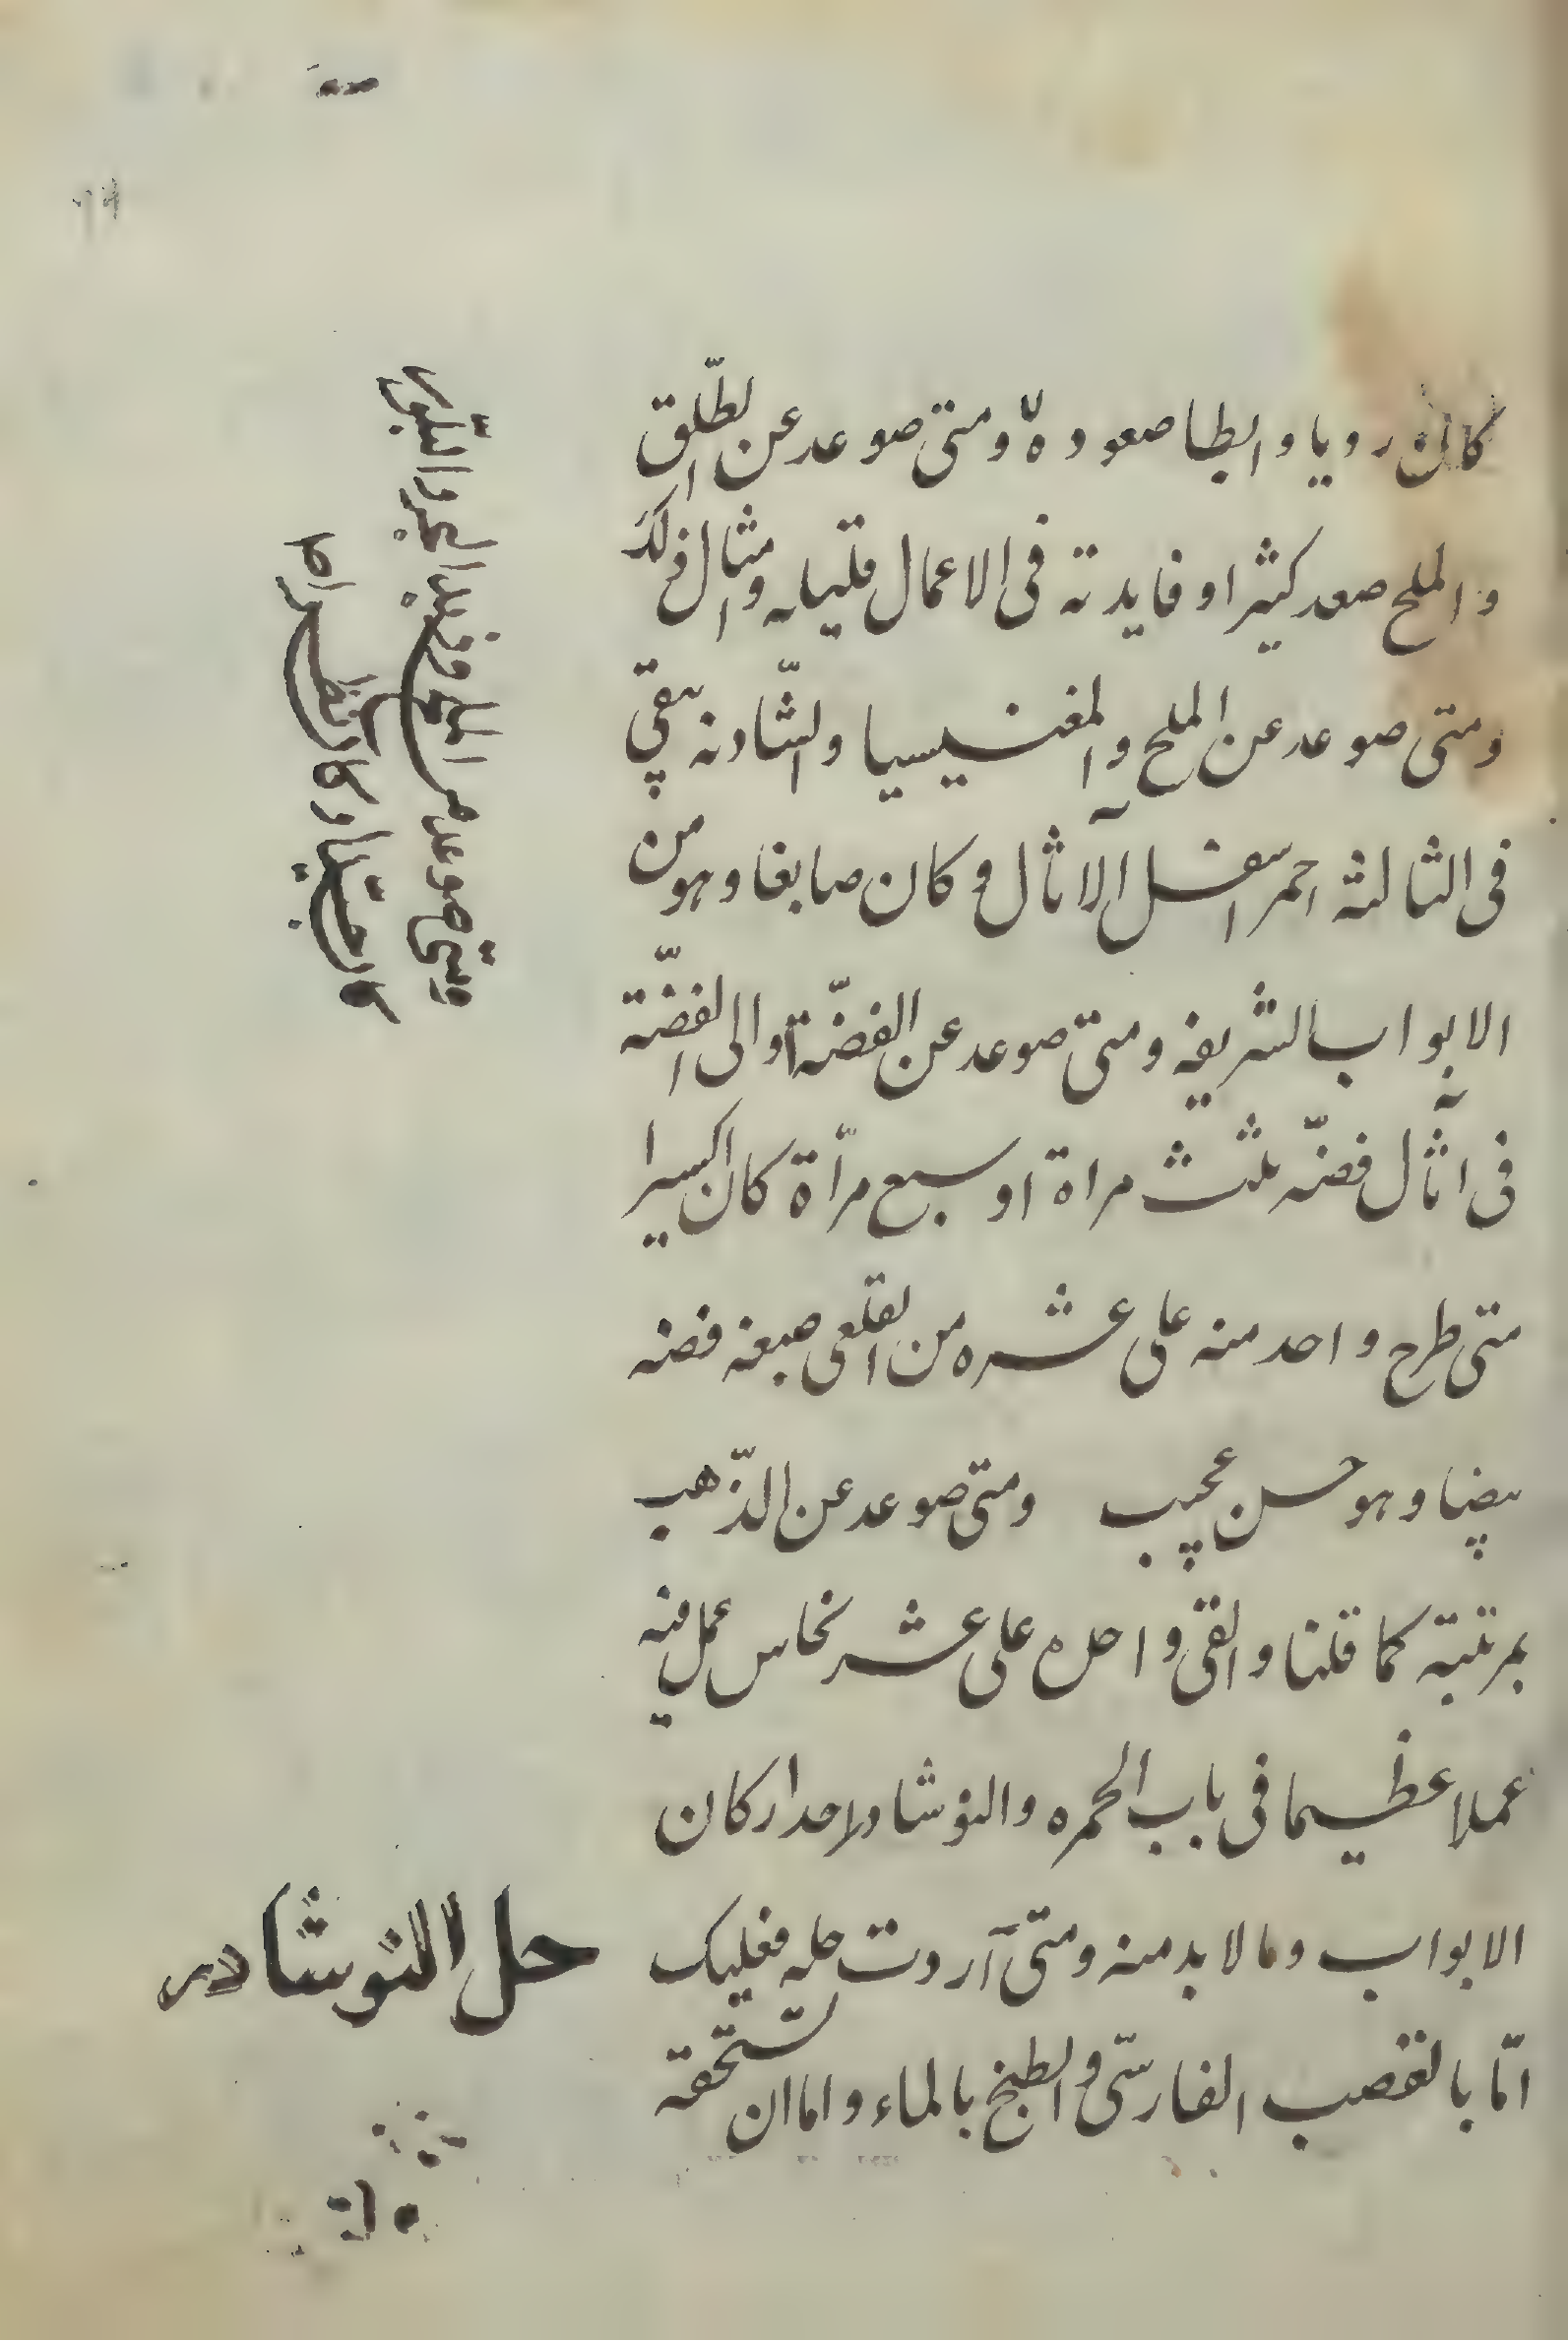 كان رويا وابطا صعوده ومتى صوعد عن الطّلق
والملح صعد كثيرا وفايدته فى الاعمال قليله وامثال ذلك
ومتى صوعد عن الملح والمغنيسيا والشّادنه يبقي
فى الثالثه احمر اسفل الآثال وكان صابغا وهو من
الابواب الشريفه ومتى صوعد عن الفضّة والى الفضّة
فى اثال فضّه ثلث مراة او سبع مرّاة كان اكسيرا
متى طرح واحد منه على عشره من القلعى صبغه فضه
بيضا وهو حسن عجيب ومتى صوعد عن الذّهب
بمرتبته كما قلنا والقى واحده على عشر نحاس عمل فيه
عملا عظيما فى باب الحمره والنوشادر احد اركان
الابواب وما لا بد منه ومتى آردت حله فعليك
امّا بالقصب الفارسّى والطبخ بالماء واما ان تستحقه
ومتى صوعد عن الملح وزبد البحر والبلّور
حل النوشادر